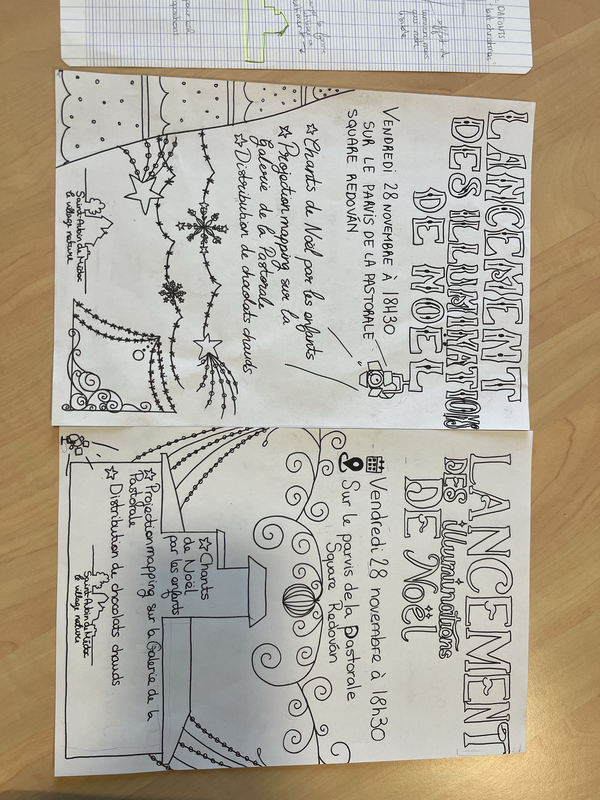 OAFONTS
LANCEMENT
DES ILLUMINATIONS
DE NOEL
VENDREDI 28 NOVEMBRE À 18H30
SUR LE PARVIS DE LA PASTORALE
SQUARE REDOVÁN
☆ Chants de Noël par les enfants
☆ Projection mapping sur la
Galerie de la Pastorale
☆ Distribution de chocolats chauds
Saint-Aubin de Médoc
le village nature
LANCEMENT
DES illuminations
DE Noël
Vendredi 28 novembre à 18h30
Sur le parvis de la Pastorale
Square Redován
☆ Chants
de Noël
par les enfants
☆ Projection mapping sur la Galerie de la
Pastorale
☆ Distribution de chocolats chauds
Saint-Aubin de Médoc
le village nature